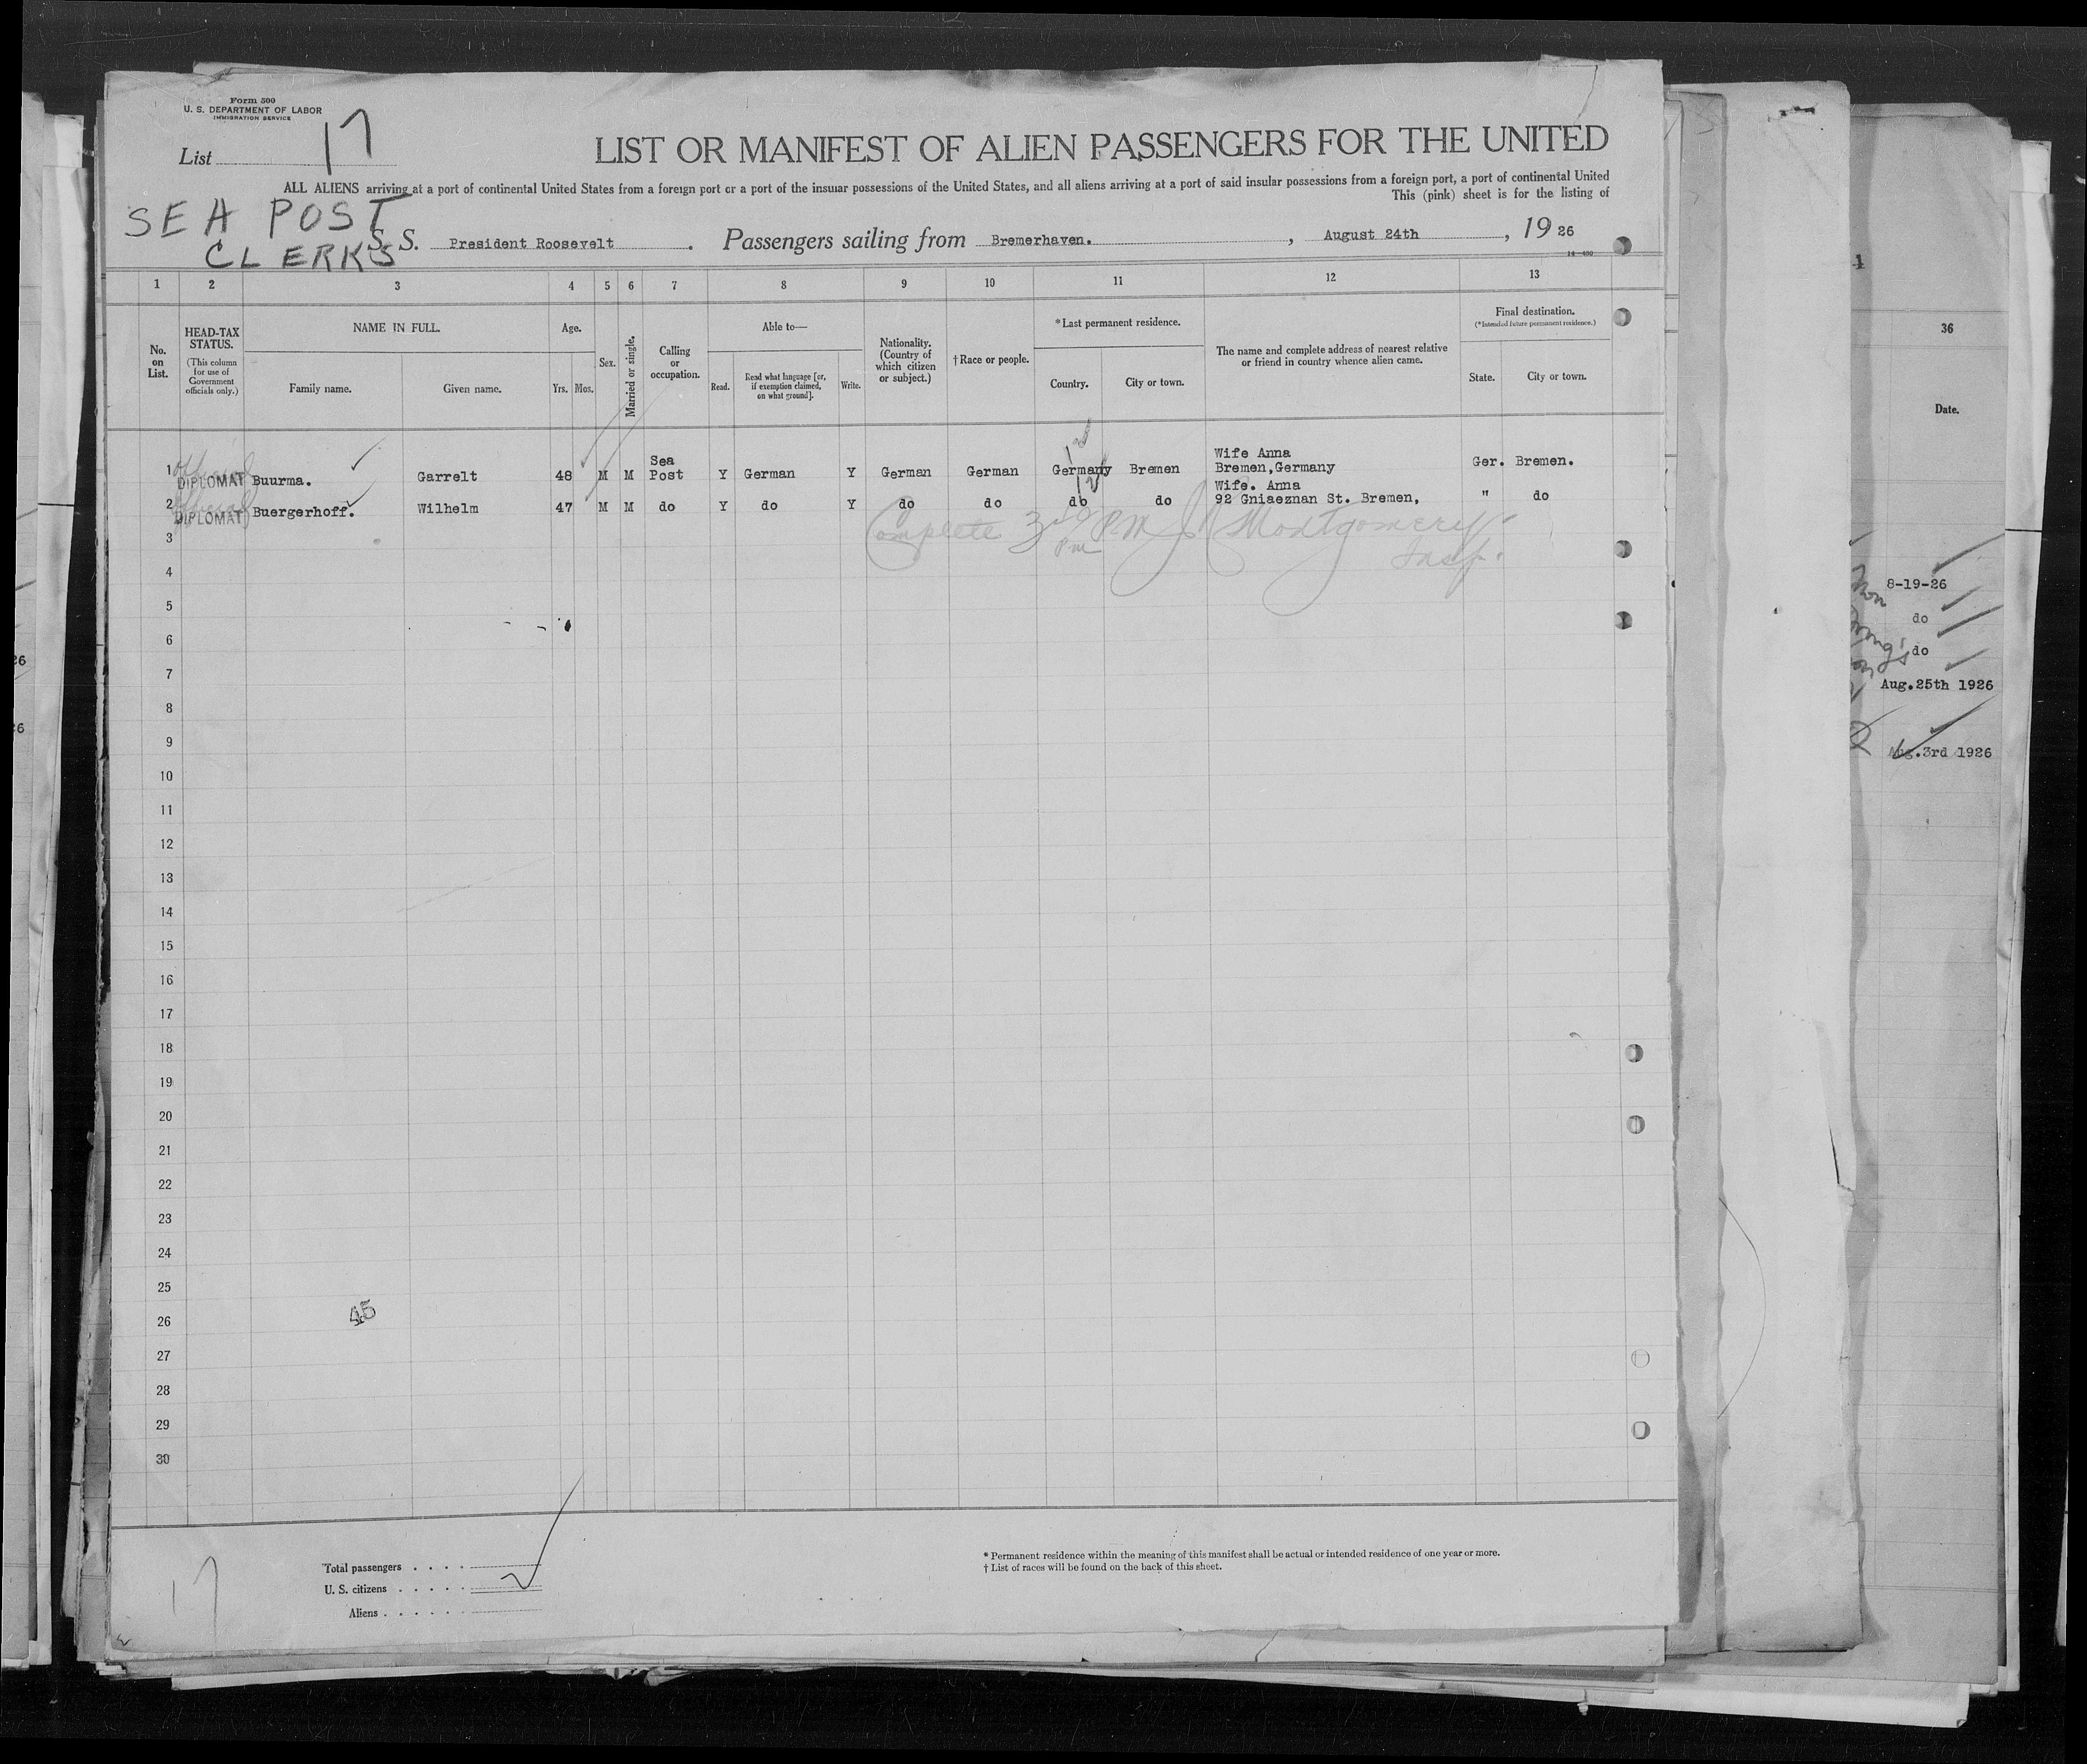 Form 500
U. S. DEPARTMENT OF LABOR
IMMIGRATION SERVICE
List 17
LIST OR MANIFEST OF ALIEN PASSENGERS FOR THE UNITED
ALL ALIENS arriving at a port of continental United States from a foreign port or a port of the insular possessions of the United States, and all aliens arriving at a port of said insular possessions from a foreign port, a port of continental United
This (pink) sheet is for the listing of
SEA POST
CLERKS
S. S. President Roosevelt . Passengers sailing from Bremerhaven. , August 24th , 1926
14—430
1 2 3 4 5 6 7 8 9 10 11 12 13
No. on List.
HEAD-TAX STATUS.
(This column for use of Government officials only.)
NAME IN FULL.
Family name.
Given name.
Age.
Yrs. Mos.
Sex.
Married or single.
Calling or occupation.
Able to—
Read.
Read what language [or, if exemption claimed, on what ground].
Write.
Nationality. (Country of which citizen or subject.)
†Race or people.
*Last permanent residence.
Country.
City or town.
The name and complete address of nearest relative or friend in country whence alien came.
Final destination.
(*Intended future permanent residence.)
State.
City or town.
1 official DIPLOMAT Buurma. Garrelt 48 M M Sea Post Y German Y German German Germany Bremen Wife Anna Bremen,Germany Ger. Bremen.
2 official DIPLOMAT Buergerhoff. Wilhelm 47 M M do Y do Y do do do do Wife. Anna 92 Gniaeznan St. Bremen, " do
Complete 3 30 P.M. Montgomery
Pm
Insp.
3
4
5
6
7
8
9
10
11
12
13
14
15
16
17
18
19
20
21
22
23
24
25
26
27
28
29
30
45
Total passengers . . . .
U. S. citizens . . . . .
Aliens . . . . . .
17
* Permanent residence within the meaning of this manifest shall be actual or intended residence of one year or more.
† List of races will be found on the back of this sheet.
36
Date.
8-19-26
do
do
Aug.25th 1926
Aug.3rd 1926
26
6